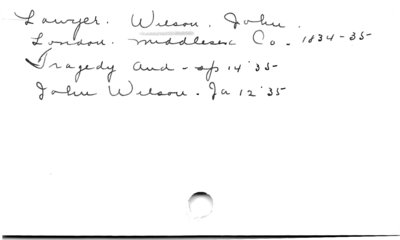 Lawyer. Wilson. John.
London. Middlesex Co. 1834-35
Tragedy and - sp 14 '35
John Wilson. Ja 12 '35